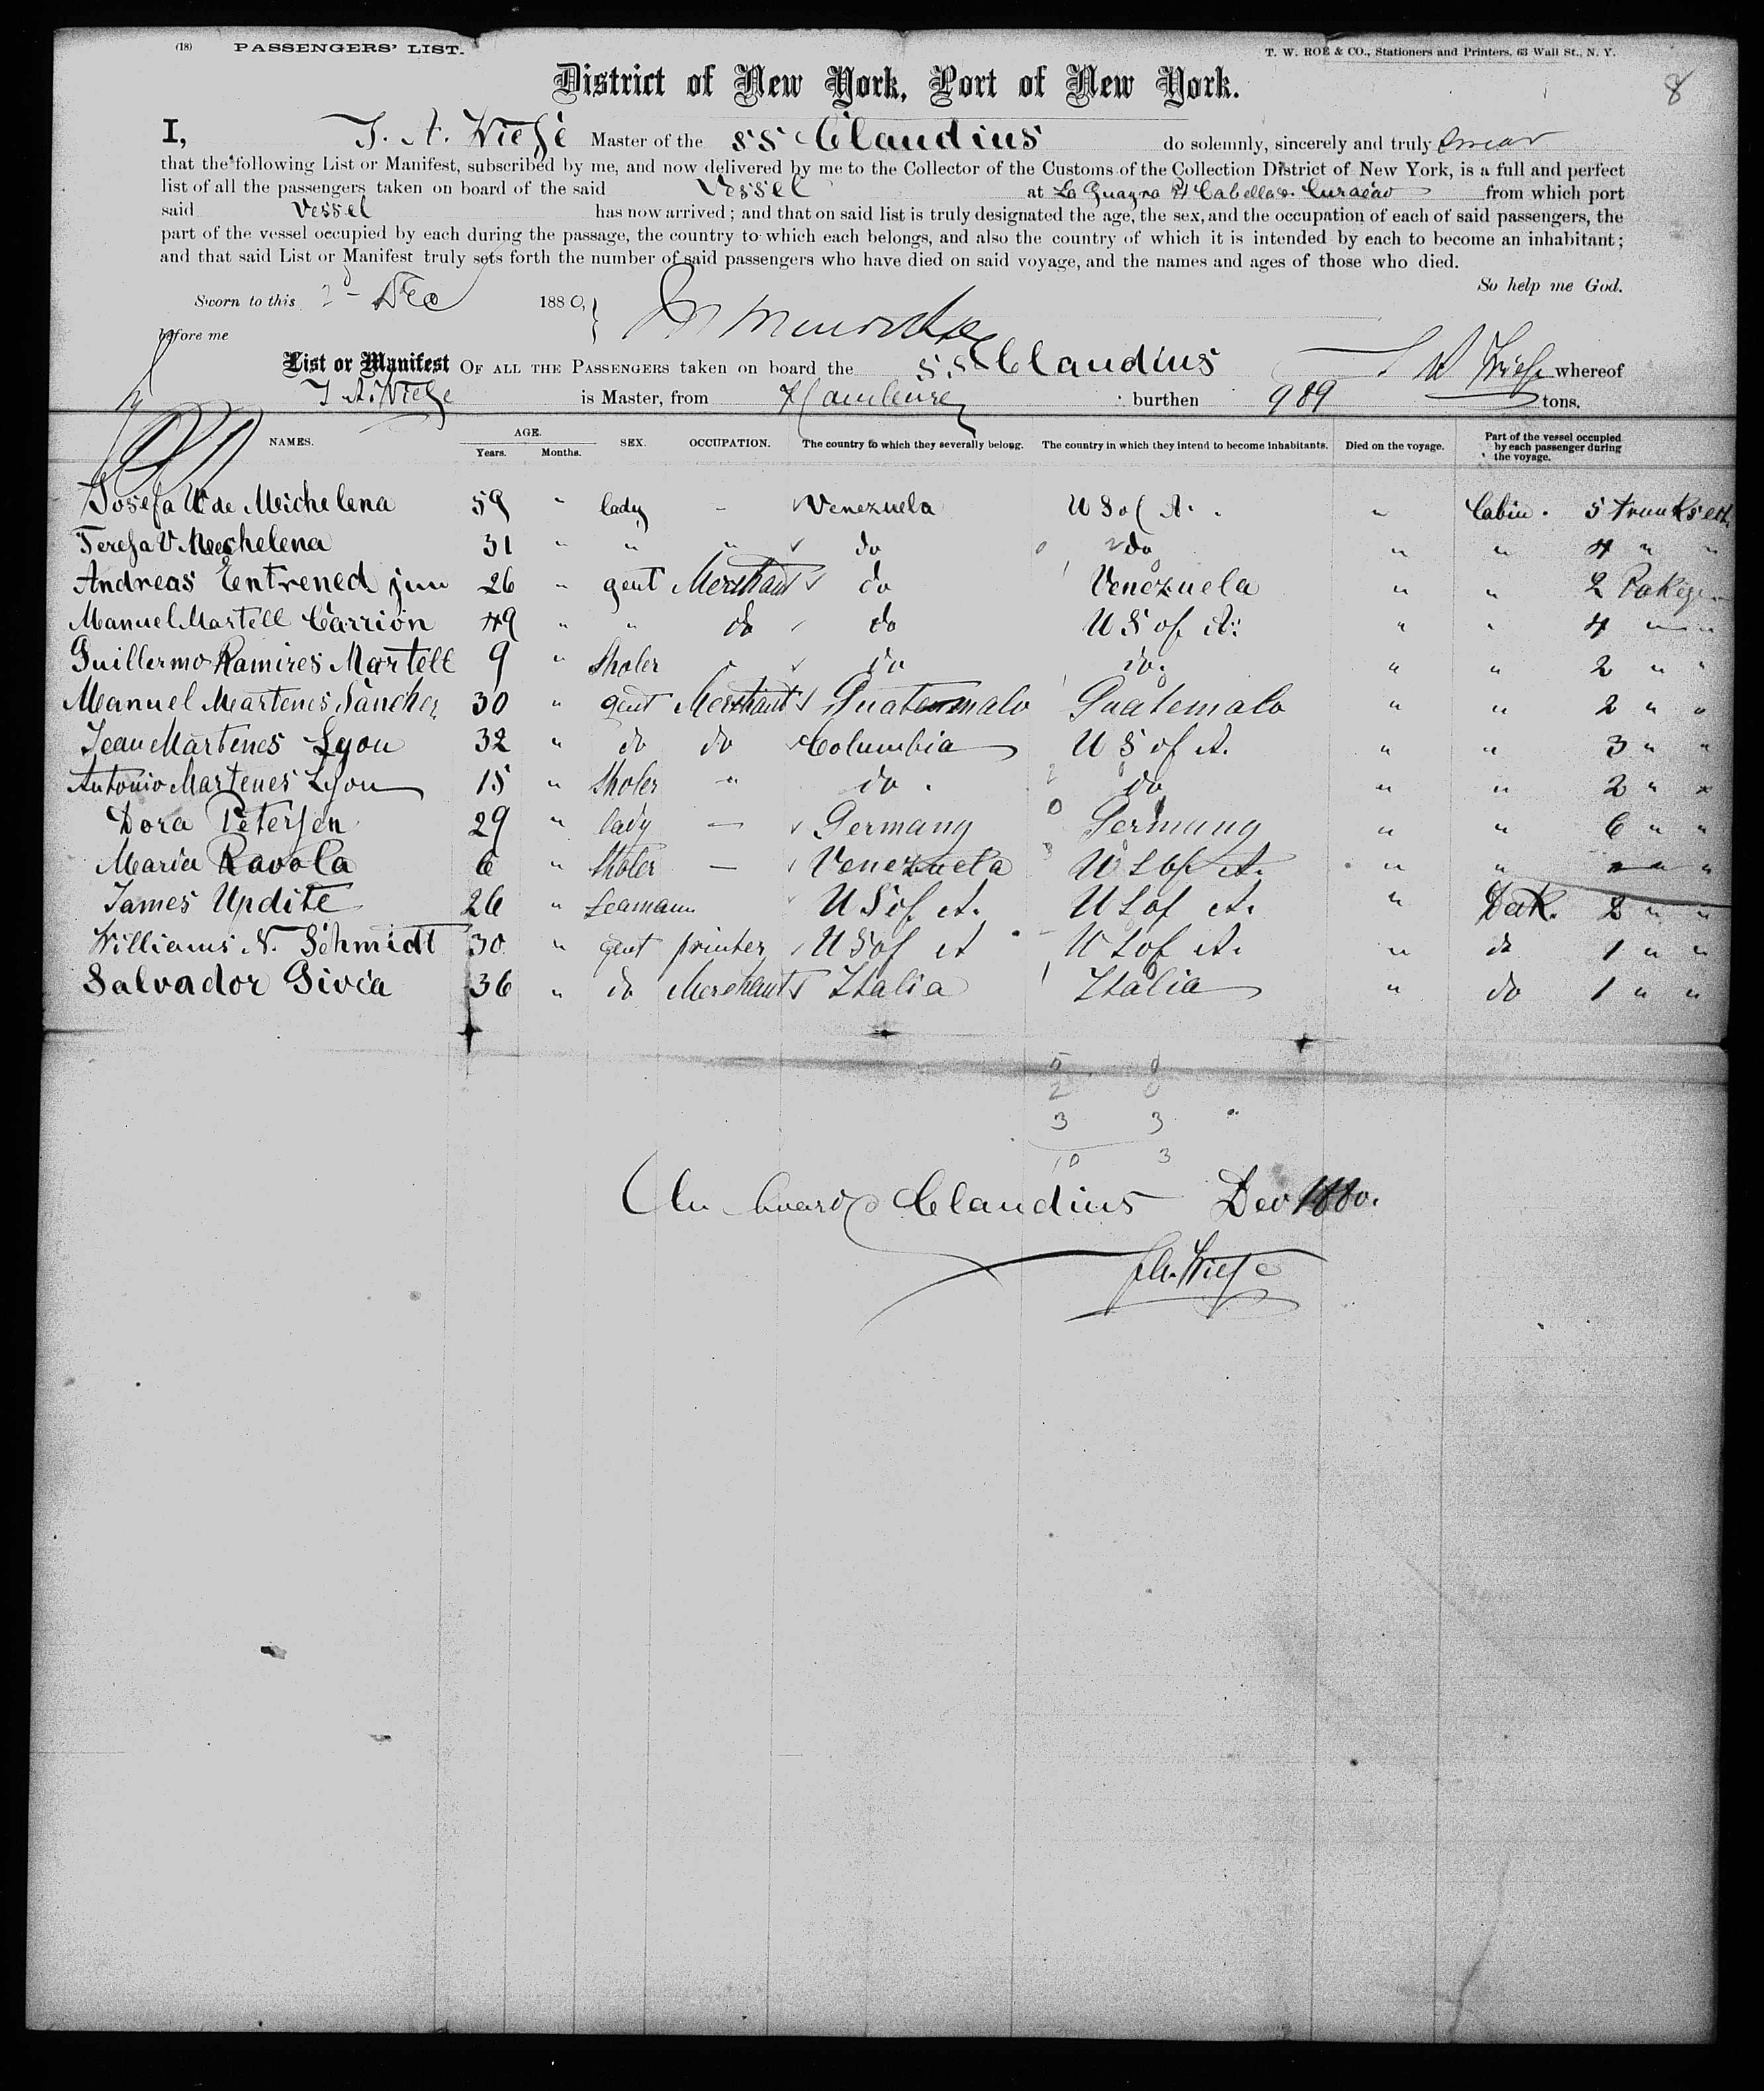 (18) PASSENGERS' LIST. T. W. ROE & CO., Stationers and Printers, 63 Wall St., N. Y.
8
District of New York, Port of New York.
I, J. A. Wiese Master of the SS Claudius do solemnly, sincerely and truly swear
that the following List or Manifest, subscribed by me, and now delivered by me to the Collector of the Customs of the Collection District of New York, is a full and perfect
list of all the passengers taken on board of the said Vessel at La Guayra Pt Cabello & Curacao from which port
said Vessel has now arrived; and that on said list is truly designated the age, the sex, and the occupation of each of said passengers, the
part of the vessel occupied by each during the passage, the country to which each belongs, and also the country of which it is intended by each to become an inhabitant;
and that said List or Manifest truly sets forth the number of said passengers who have died on said voyage, and the names and ages of those who died.
So help me God.
Sworn to this 2 Dec 1880,
before me
List or Manifest OF ALL THE PASSENGERS taken on board the S.S. Claudius whereof
J. A. Wiese is Master, from Hamburg burthen 989 tons.
NAMES. AGE. Years. Months. SEX. OCCUPATION. The country to which they severally belong. The country in which they intend to become inhabitants. Died on the voyage. Part of the vessel occupied by each passenger during the voyage.
Josefa de Michelena 59 " lady - Venezuela U S of A. " Cabin. 5 trunks
Teresa V Michelena 31 " " " do do " " 4 " "
Andreas Entrened jun 26 " gent Merchant do Venezuela " " 2
Manuel Martell Carrion 49 " " do do U S of A. " " 4 " "
Guillermo Ramires Martell 9 " Sholer " do do. " " 2 " "
Manuel Martenes Sanchez 30 " gent Merchant Guatemala Guatemala " " 2 " "
Jean Martenes Lyon 32 " do do Columbia U S of A. " " 3 " "
Antonio Martenes Lyon 15 " Sholer " do. do " " 2 " "
Dora Petersen 29 " lady — Germany Germany " " 6 " "
Maria Ravola 6 " Sholer — Venezuela U S of A. " " " "
James Updite 26 " Seamann U S of A. U S of A. " Dek. 2 " "
Williams N. Schmidt 30 " gent printer U S of A U S of A. " do 1 " "
Salvador Givia 36 " do Merchant Italia Italia " do 1 " "
5 0
2 0
3 3
10 3
On board Claudius Dec 1880.
J. A. Wiese